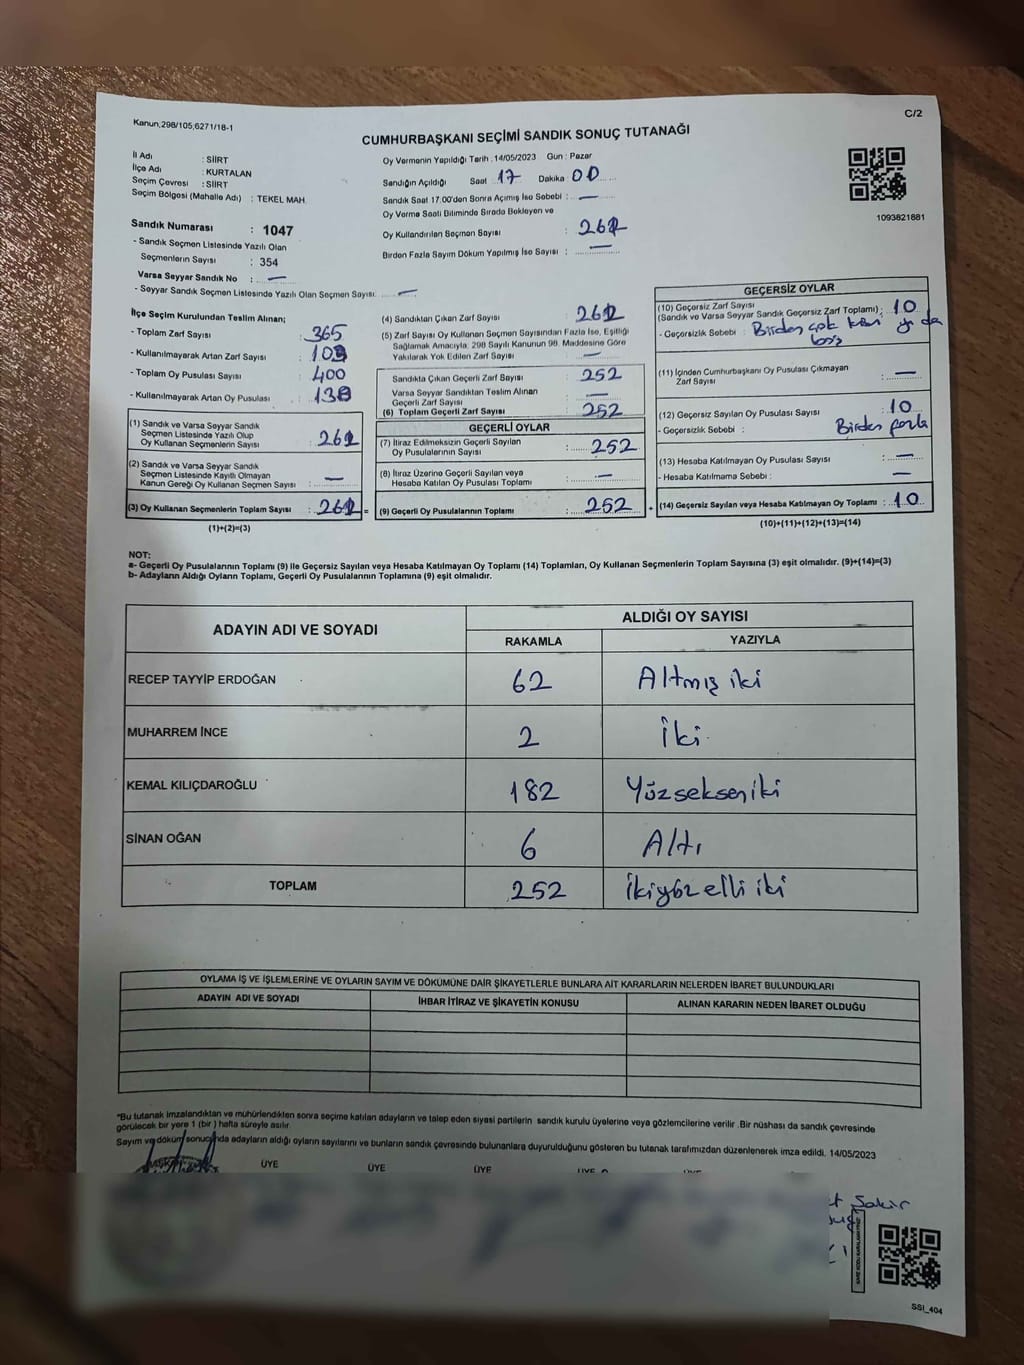 Kanun,298/105,6271/18-1
C/2
CUMHURBAŞKANI SEÇİMİ SANDIK SONUÇ TUTANAĞI
İl Adı : SİİRT
İlçe Adı : KURTALAN
Seçim Çevresi : SİİRT
Seçim Bölgesi (Mahalle Adı) : TEKEL MAH.
Oy Vermenin Yapıldığı Tarih : 14/05/2023 Gün : Pazar
Sandığın Açıldığı Saat 17 Dakika 00
Sandık Saat 17.00'den Sonra Açılmış İse Sebebi : —
Oy Verme Saati Bitiminde Sırada Bekleyen ve
Oy Kullandırılan Seçmen Sayısı : 262
Birden Fazla Sayım Döküm Yapılmış İse Sayısı : —
1093821881
Sandık Numarası : 1047
- Sandık Seçmen Listesinde Yazılı Olan
Seçmenlerin Sayısı : 354
Varsa Seyyar Sandık No : —
- Seyyar Sandık Seçmen Listesinde Yazılı Olan Seçmen Sayısı: —
İlçe Seçim Kurulundan Teslim Alınan;
- Toplam Zarf Sayısı : 365
- Kullanılmayarak Artan Zarf Sayısı : 103
- Toplam Oy Pusulası Sayısı : 400
- Kullanılmayarak Artan Oy Pusulası : 138
(1) Sandık ve Varsa Seyyar Sandık
Seçmen Listesinde Yazılı Olup
Oy Kullanan Seçmenlerin Sayısı : 262
(2) Sandık ve Varsa Seyyar Sandık
Seçmen Listesinde Kayıtlı Olmayan
Kanun Gereği Oy Kullanan Seçmen Sayısı : —
(3) Oy Kullanan Seçmenlerin Toplam Sayısı : 262 =
(1)+(2)=(3)
(4) Sandıktan Çıkan Zarf Sayısı : 262
(5) Zarf Sayısı Oy Kullanan Seçmen Sayısından Fazla İse, Eşitliği
Sağlamak Amacıyla, 298 Sayılı Kanunun 98. Maddesine Göre
Yakılarak Yok Edilen Zarf Sayısı : —
Sandıkta Çıkan Geçerli Zarf Sayısı : 252
Varsa Seyyar Sandıktan Teslim Alınan
Geçerli Zarf Sayısı : —
(6) Toplam Geçerli Zarf Sayısı : 252
GEÇERLİ OYLAR
(7) İtiraz Edilmeksizin Geçerli Sayılan
Oy Pusulalarının Sayısı : 252
(8) İtiraz Üzerine Geçerli Sayılan veya
Hesaba Katılan Oy Pusulası Toplamı : —
(9) Geçerli Oy Pusulalarının Toplamı : 252 +
GEÇERSİZ OYLAR
(10) Geçersiz Zarf Sayısı
(Sandık ve Varsa Seyyar Sandık Geçersiz Zarf Toplamı) : 10
- Geçersizlik Sebebi : Birden çok ya da
boş
(11) İçinden Cumhurbaşkanı Oy Pusulası Çıkmayan
Zarf Sayısı : —
(12) Geçersiz Sayılan Oy Pusulası Sayısı : 10
- Geçersizlik Sebebi : Birden fazla
(13) Hesaba Katılmayan Oy Pusulası Sayısı : —
- Hesaba Katılmama Sebebi : —
(14) Geçersiz Sayılan veya Hesaba Katılmayan Oy Toplamı : 10
(10)+(11)+(12)+(13)=(14)
NOT:
a- Geçerli Oy Pusulalarının Toplamı (9) ile Geçersiz Sayılan veya Hesaba Katılmayan Oy Toplamı (14) Toplamları, Oy Kullanan Seçmenlerin Toplam Sayısına (3) eşit olmalıdır. (9)+(14)=(3)
b- Adayların Aldığı Oyların Toplamı, Geçerli Oy Pusulalarının Toplamına (9) eşit olmalıdır.
ADAYIN ADI VE SOYADI
ALDIĞI OY SAYISI
RAKAMLA YAZIYLA
RECEP TAYYİP ERDOĞAN 62 Altmış iki
MUHARREM İNCE 2 İki
KEMAL KILIÇDAROĞLU 182 Yüzseksen iki
SİNAN OĞAN 6 Altı
TOPLAM 252 İkiyüz elli iki
OYLAMA İŞ VE İŞLEMLERİNE VE OYLARIN SAYIM VE DÖKÜMÜNE DAİR ŞİKAYETLERLE BUNLARA AİT KARARLARIN NELERDEN İBARET BULUNDUKLARI
ADAYIN ADI VE SOYADI İHBAR İTİRAZ VE ŞİKAYETİN KONUSU ALINAN KARARIN NEDEN İBARET OLDUĞU
*Bu tutanak imzalandıktan ve mühürlendikten sonra seçime katılan adayların ve talep eden siyasi partilerin sandık kurulu üyelerine veya gözlemcilerine verilir .Bir nüshası da sandık çevresinde
görülecek bir yere 1 (bir ) hafta süreyle asılır.
Sayım ve döküm sonucunda adayların aldığı oyların sayılarını ve bunların sandık çevresinde bulunanlara duyurulduğunu gösteren bu tutanak tarafımızdan düzenlenerek imza edildi. 14/05/2023
BAŞKAN ÜYE ÜYE ÜYE ÜYE
Şakir
SSİ_404